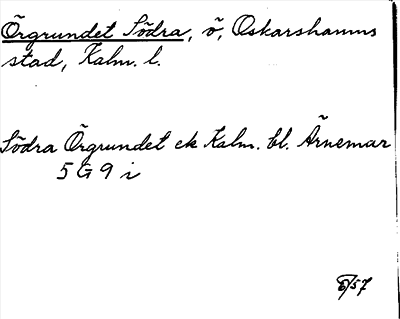 Örgrundet Södra, ö, Oskarshamns
stad, Kalm. l.
Södra Örgrundet ek Kalm. bl. Ärnemar
5 G 9 i
/57